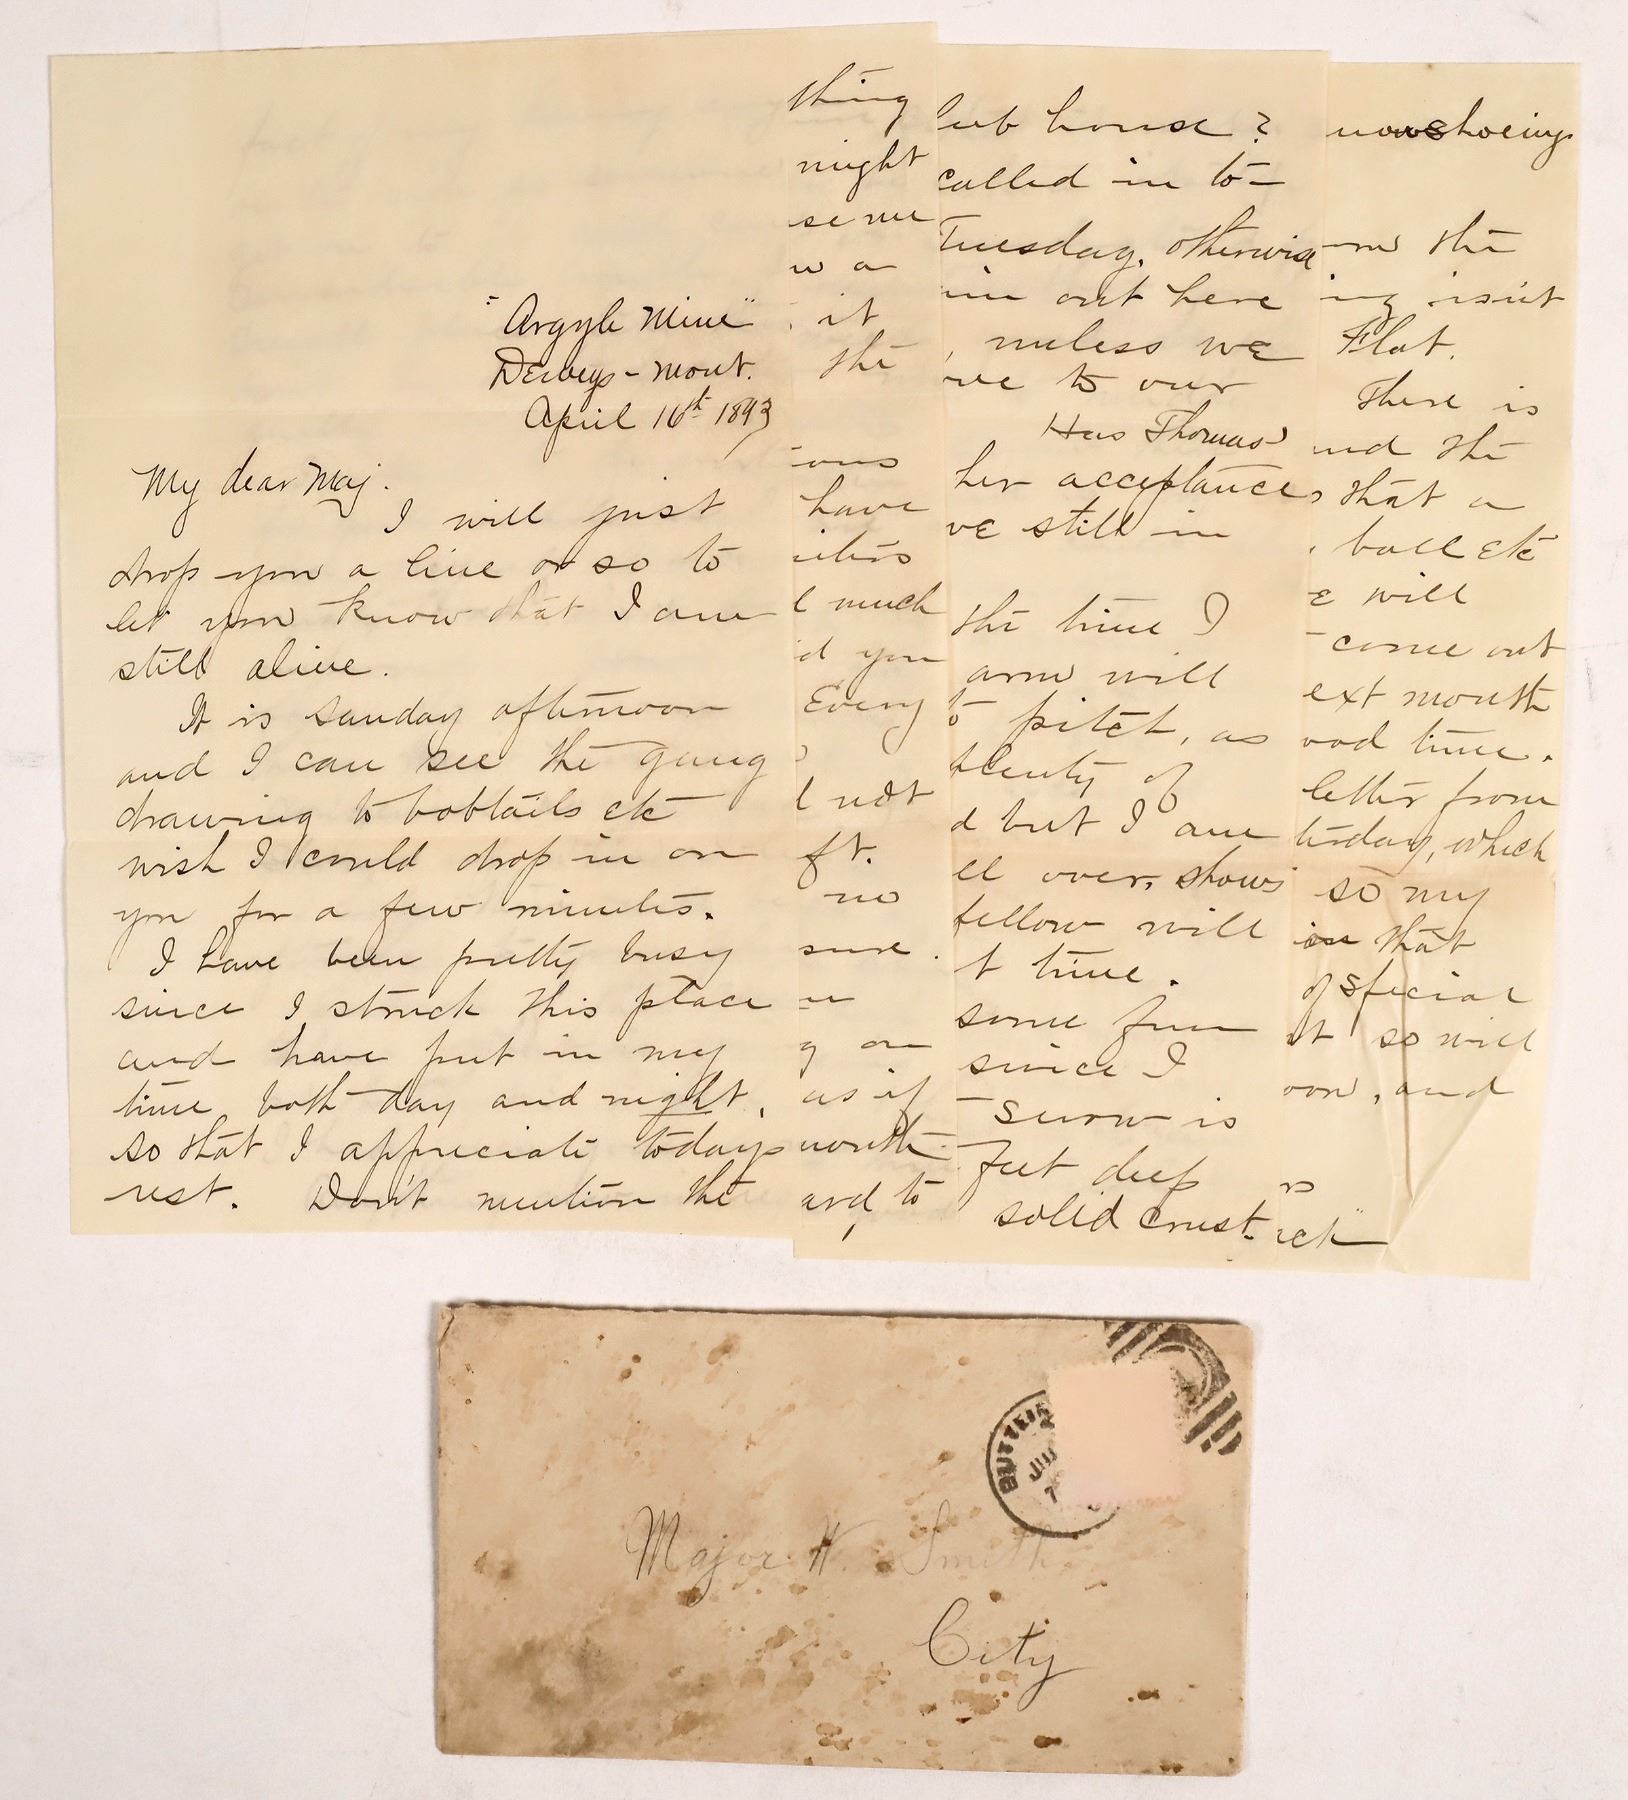 "Argyle Mine"
Deweys - Mont.
April 16th 1893
My dear Maj.
I will just
drop you a line or so to
let you know that I am
still alive.
It is Sunday afternoon
and I can see the gang
drawing to bobtails etc
wish I could drop in on
you for a few minutes.
I have been pretty busy
since I struck this place
and have put in my
time both day and night,
so that I appreciate todays
rest. Don't mention the
thing
might
se me
w a
it
the
ous
have
l much
d you
Every
l not
ft.
no
sure.
g on
as if
month
ard to
lub house?
called in to-
Tuesday, otherwise
im out here
, unless we
ve to our
Has Thomas
her acceptance,
ve still in
the time I
arm will
pitch, as
plenty of
d but I am
ll over, shows
fellow will
t time.
some fun
since I
snow is
feet deep
solid crust.
nowshoeing
the
ing isn't
Flat.
There is
nd the
that a
, ball etc
e will
come out
ext month
ood time.
letter from
terday, which
so my
in that
of special
it so will
oon, and
ck"
BUTTE
JUL
7
Major W. Smith
City